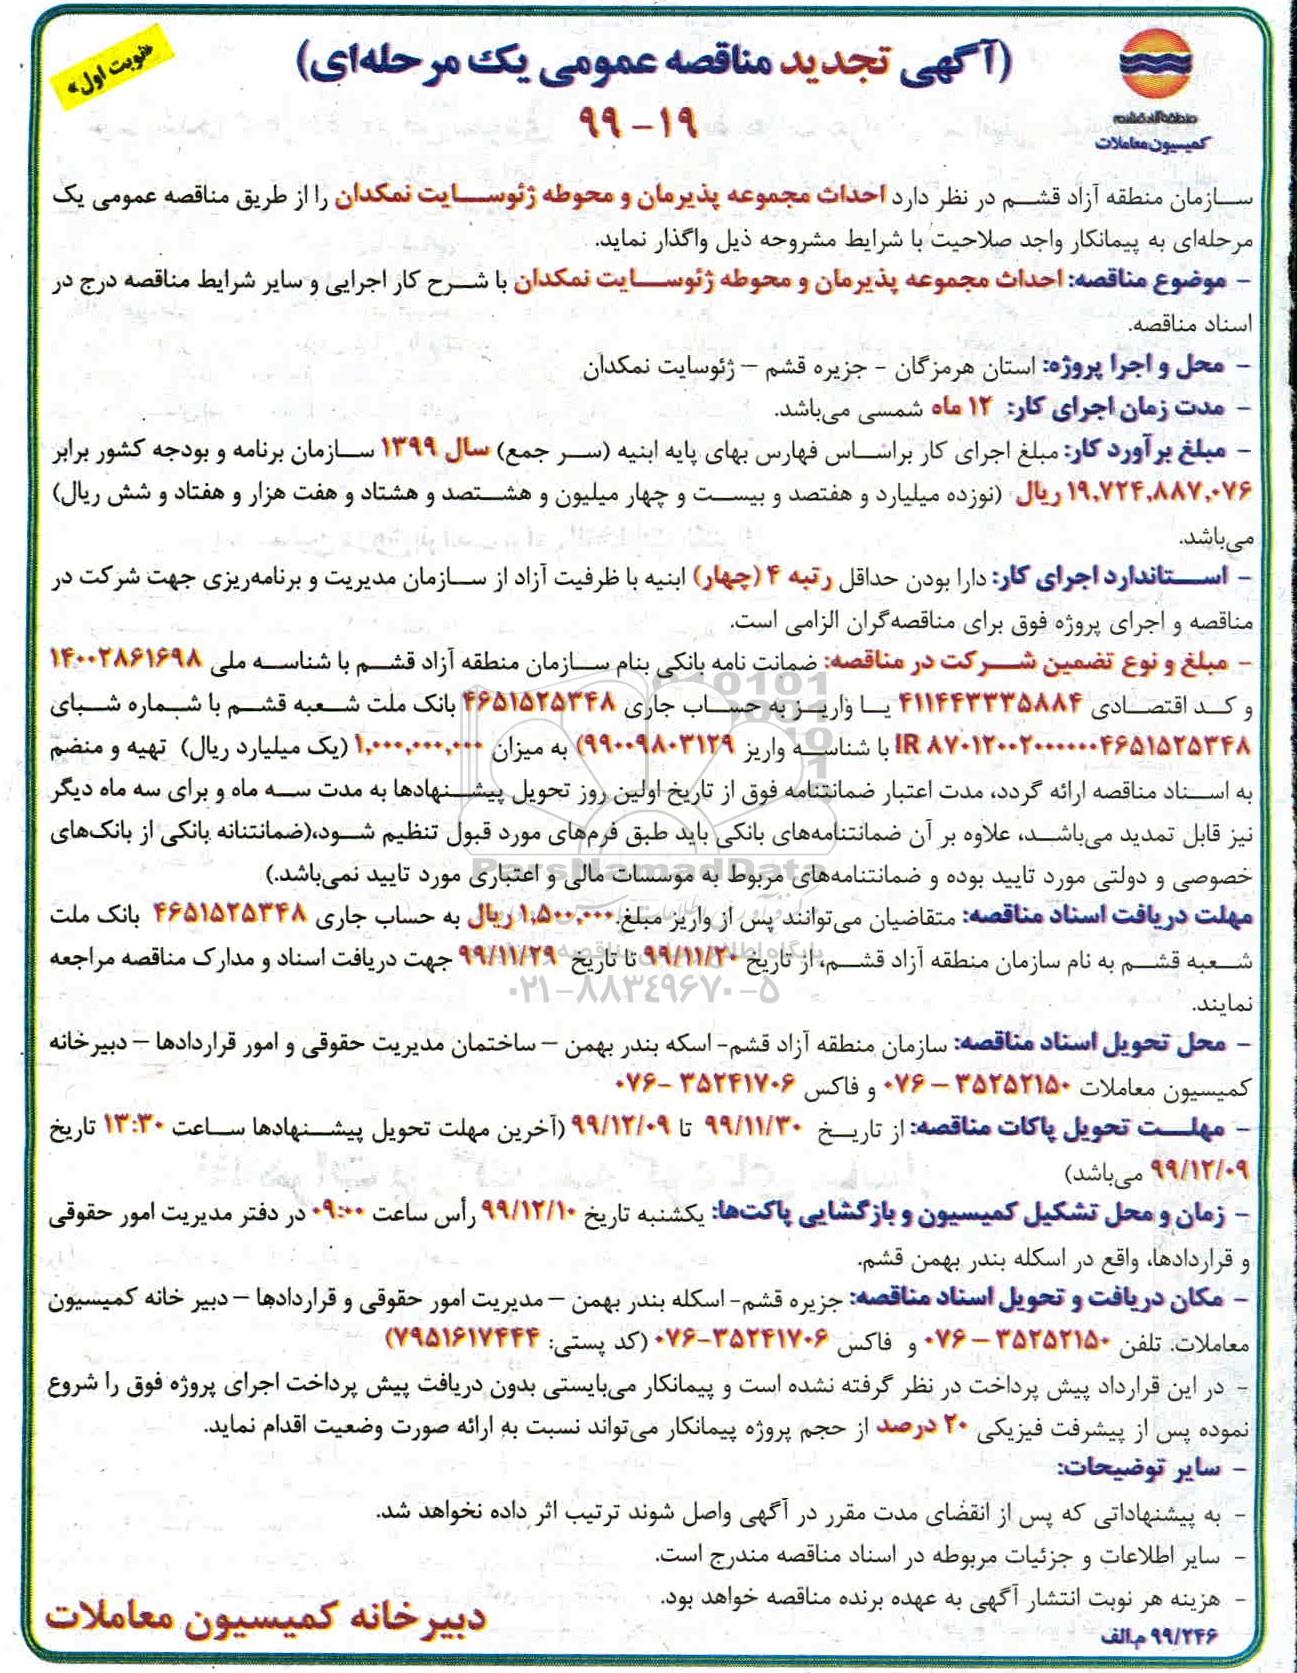 «نوبت اول»
(آگهی تجدید مناقصه عمومی یک مرحله‌ای)
۹۹ - ۱۹
منطقه آزاد قشم
کمیسیون معاملات
سازمان منطقه آزاد قشم در نظر دارد احداث مجموعه پذیرمان و محوطه ژئوسایت نمکدان را از طریق مناقصه عمومی یک
مرحله‌ای به پیمانکار واجد صلاحیت با شرایط مشروحه ذیل واگذار نماید.
- موضوع مناقصه: احداث مجموعه پذیرمان و محوطه ژئوسایت نمکدان با شرح کار اجرایی و سایر شرایط مناقصه درج در
اسناد مناقصه.
- محل و اجرا پروژه: استان هرمزگان - جزیره قشم – ژئوسایت نمکدان
- مدت زمان اجرای کار: ۱۲ ماه شمسی می‌باشد.
- مبلغ برآورد کار: مبلغ اجرای کار براساس فهارس بهای پایه ابنیه (سر جمع) سال ۱۳۹۹ سازمان برنامه و بودجه کشور برابر
۱۹,۷۲۴,۸۸۷,۰۷۶ ریال (نوزده میلیارد و هفتصد و بیست و چهار میلیون و هشتصد و هشتاد و هفت هزار و هفتاد و شش ریال)
می‌باشد.
- استاندارد اجرای کار: دارا بودن حداقل رتبه ۴ (چهار) ابنیه با ظرفیت آزاد از سازمان مدیریت و برنامه‌ریزی جهت شرکت در
مناقصه و اجرای پروژه فوق برای مناقصه‌گران الزامی است.
- مبلغ و نوع تضمین شرکت در مناقصه: ضمانت نامه بانکی بنام سازمان منطقه آزاد قشم با شناسه ملی ۱۴۰۰۲۸۶۱۶۹۸
و کد اقتصادی ۴۱۱۴۴۳۳۳۵۸۸۴ یا واریز به حساب جاری ۴۶۵۱۵۲۵۳۴۸ بانک ملت شعبه قشم با شماره شبای
IR ۸۷۰۱۲۰۰۲۰۰۰۰۰۰۴۶۵۱۵۲۵۳۴۸ با شناسه واریز ۹۹۰۰۹۸۰۳۱۲۹) به میزان ۱,۰۰۰,۰۰۰,۰۰۰ (یک میلیارد ریال) تهیه و منضم
به اسناد مناقصه ارائه گردد، مدت اعتبار ضمانتنامه فوق از تاریخ اولین روز تحویل پیشنهادها به مدت سه ماه و برای سه ماه دیگر
نیز قابل تمدید می‌باشد، علاوه بر آن ضمانتنامه‌های بانکی باید طبق فرم‌های مورد قبول تنظیم شود،(ضمانتنانه بانکی از بانک‌های
خصوصی و دولتی مورد تایید بوده و ضمانتنامه‌های مربوط به موسسات مالی و اعتباری مورد تایید نمی‌باشد.)
مهلت دریافت اسناد مناقصه: متقاضیان می‌توانند پس از واریز مبلغ ۱,۵۰۰,۰۰۰ ریال به حساب جاری ۴۶۵۱۵۲۵۳۴۸ بانک ملت
شعبه قشم به نام سازمان منطقه آزاد قشم، از تاریخ ۹۹/۱۱/۲۰ تا تاریخ ۹۹/۱۱/۲۹ جهت دریافت اسناد و مدارک مناقصه مراجعه
نمایند.
- محل تحویل اسناد مناقصه: سازمان منطقه آزاد قشم- اسکه بندر بهمن – ساختمان مدیریت حقوقی و امور قراردادها – دبیرخانه
کمیسیون معاملات ۳۵۲۵۲۱۵۰ – ۰۷۶ و فاکس ۳۵۲۴۱۷۰۶ -۰۷۶
- مهلت تحویل پاکات مناقصه: از تاریخ ۹۹/۱۱/۳۰ تا ۹۹/۱۲/۰۹ (آخرین مهلت تحویل پیشنهادها ساعت ۱۳:۳۰ تاریخ
۹۹/۱۲/۰۹ می‌باشد)
- زمان و محل تشکیل کمیسیون و بازگشایی پاکت‌ها: یکشنبه تاریخ ۹۹/۱۲/۱۰ رأس ساعت ۰۹:۰۰ در دفتر مدیریت امور حقوقی
و قراردادها، واقع در اسکله بندر بهمن قشم.
- مکان دریافت و تحویل اسناد مناقصه: جزیره قشم- اسکله بندر بهمن – مدیریت امور حقوقی و قراردادها – دبیر خانه کمیسیون
معاملات. تلفن ۳۵۲۵۲۱۵۰ – ۰۷۶ و فاکس ۳۵۲۴۱۷۰۶-۰۷۶ (کد پستی: ۷۹۵۱۶۱۷۴۴۴)
- در این قرارداد پیش پرداخت در نظر گرفته نشده است و پیمانکار می‌بایستی بدون دریافت پیش پرداخت اجرای پروژه فوق را شروع
نموده پس از پیشرفت فیزیکی ۲۰ درصد از حجم پروژه پیمانکار می‌تواند نسبت به ارائه صورت وضعیت اقدام نماید.
- سایر توضیحات:
- به پیشنهاداتی که پس از انقضای مدت مقرر در آگهی واصل شوند ترتیب اثر داده نخواهد شد.
- سایر اطلاعات و جزئیات مربوطه در اسناد مناقصه مندرج است.
- هزینه هر نوبت انتشار آگهی به عهده برنده مناقصه خواهد بود.
۹۹/۲۴۶ م.الف
دبیرخانه کمیسیون معاملات
ParsNamadData
۰۲۱-۸۸۳۴۹۶۷۰-۵